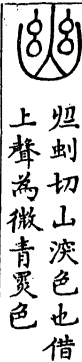 幽
虯切山深色也借
上聲為微青黑色